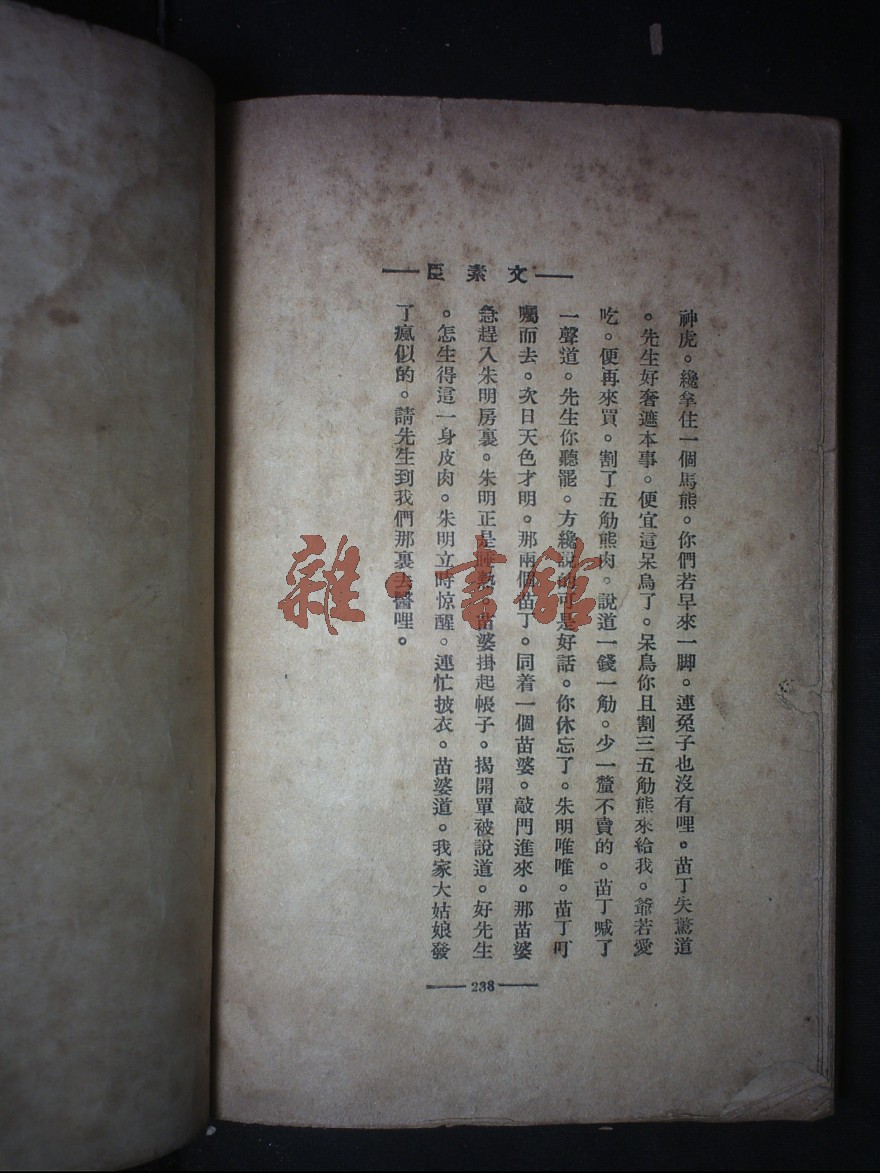 文素臣
神虎。纔拿住一個馬熊。你們若早來一脚。連兔子也沒有哩。苗丁失驚道
。先生好奢遮本事。便宜這呆鳥了。呆鳥你且割三五觔熊來給我。爺若愛
吃。便再來買。割了五觔熊肉。說道一錢一觔。少一釐不賣的。苗丁喊了
一聲道。先生你聽罷。方纔說的可是好話。你休忘了。朱明唯唯。苗丁叮
囑而去。次日天色才明。那兩個苗丁。同着一個苗婆。敲門進來。那苗婆
急趕入朱明房裏。朱明正是睡熟。苗婆掛起帳子。揭開單被說道。好先生
。怎生得這一身皮肉。朱明立時惊醒。連忙披衣。苗婆道。我家大姑娘發
了瘋似的。請先生到我們那裏去醫哩。
238
雜·書館